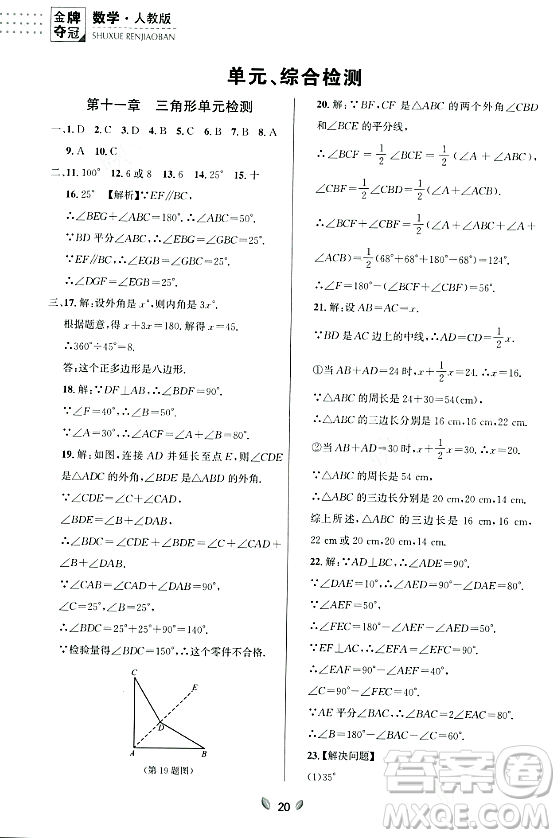 金牌
夺冠
数学·人教版
SHUXUE RENJIAOBAN
单元、综合检测
第十一章 三角形单元检测
一、1. D 2. C 3. D 4. D 5. C 6. B 7. B 8. A
9. A 10. C
二、11. 100° 12. 6 或 8 13. 6 14. 25° 15. 十
16. 25° 【解析】∵EF∥BC,
∴∠BEG+∠ABC=180°. ∴∠ABC=50°.
∵BD 平分∠ABC, ∴∠GBC=25°.
∵EF∥BC,
∴∠DGF=∠GBC=25°. ∴∠DGF=25°.
三、17. 解: 设外角是 x°, 则内角是 3x°.
根据题意, 得 x+3x=180. 解得 x=45.
∴360°÷45°=8.
答: 这个正多边形是八边形.
18. 解: ∵DF⊥AB, ∴∠AFE=90°.
∴∠A+∠AEF=90°. ∴∠A=30°.
∵∠ACB=∠A+∠B=80°, ∠ACB=80°,
∵∠A=30°, ∴∠B=50°.
19. 解: 如图, 连接 AD 并延长至点 E, 则∠CDE
是△ADC 的外角, ∠BDE 是△ABD 的外角.
∴∠CDE=∠C+∠CAD,
∠BDE=∠B+∠DAB.
∴∠BDC=∠CDE+∠BDE
=∠C+∠CAD+∠DAB+∠B.
∵∠CAB=∠CAD+∠DAB=90°,
∠C=25°, ∠B=25°,
∴∠BDC=25°+25°+90°=140°.
∵检验量得∠BDC=150°, ∴这个零件不合格.
C
E
D
A
B
(第 19 题图)
20. 解: ∵BF, CF 是△ABC 的两个外角∠CBE
和∠BCE 的平分线,
∴∠BCF=1/2∠BCE=1/2(∠A+∠ABC),
∠CBF=1/2∠CBD=1/2(∠A+∠ACB).
∴∠BCF+∠CBF=1/2(∠A+∠ABC+∠A+
∠ACB)=1/2(68°+68°+68°+44°)=124°.
∴∠F=180°-(∠BCF+∠CBF)=56°.
21. 解: 设 AB=AC=x.
∵BD 是 AC 边上的中线, ∴AD=CD=1/2x.
①当 AB+AD=24 时, x+1/2x=24. ∴x=16.
∴△ABC 的周长=24+30=54(cm).
∴△ABC 的三边长分别是 16 cm, 16 cm, 22 cm.
②当 AB+AD=30 时, x+1/2x=30. ∴x=20.
∴△ABC 的周长=24+30=54(cm).
∴△ABC 的三边长分别是 20 cm, 20 cm, 14 cm.
综上所述, △ABC 的三边长是 16 cm, 16 cm,
22 cm 或 20 cm, 20 cm, 14 cm.
22. 解: ∵AD⊥BC, ∴∠ADE=90°.
∵∠DAE=10°, ∴∠AED=80°.
∵∠AEF=50°,
∴∠DEF=∠AED-∠AEF=30°.
∵EF∥AC, ∴∠C=∠DEF=30°,
∠EAC=∠AEF=50°.
∴∠DAC=∠DAE+∠EAC=60°.
∴∠BAD=90°-∠DAC=30°.
∴∠B=90°-∠BAD=60°.
23.【解决问题】
(1)35°
20
答案圈